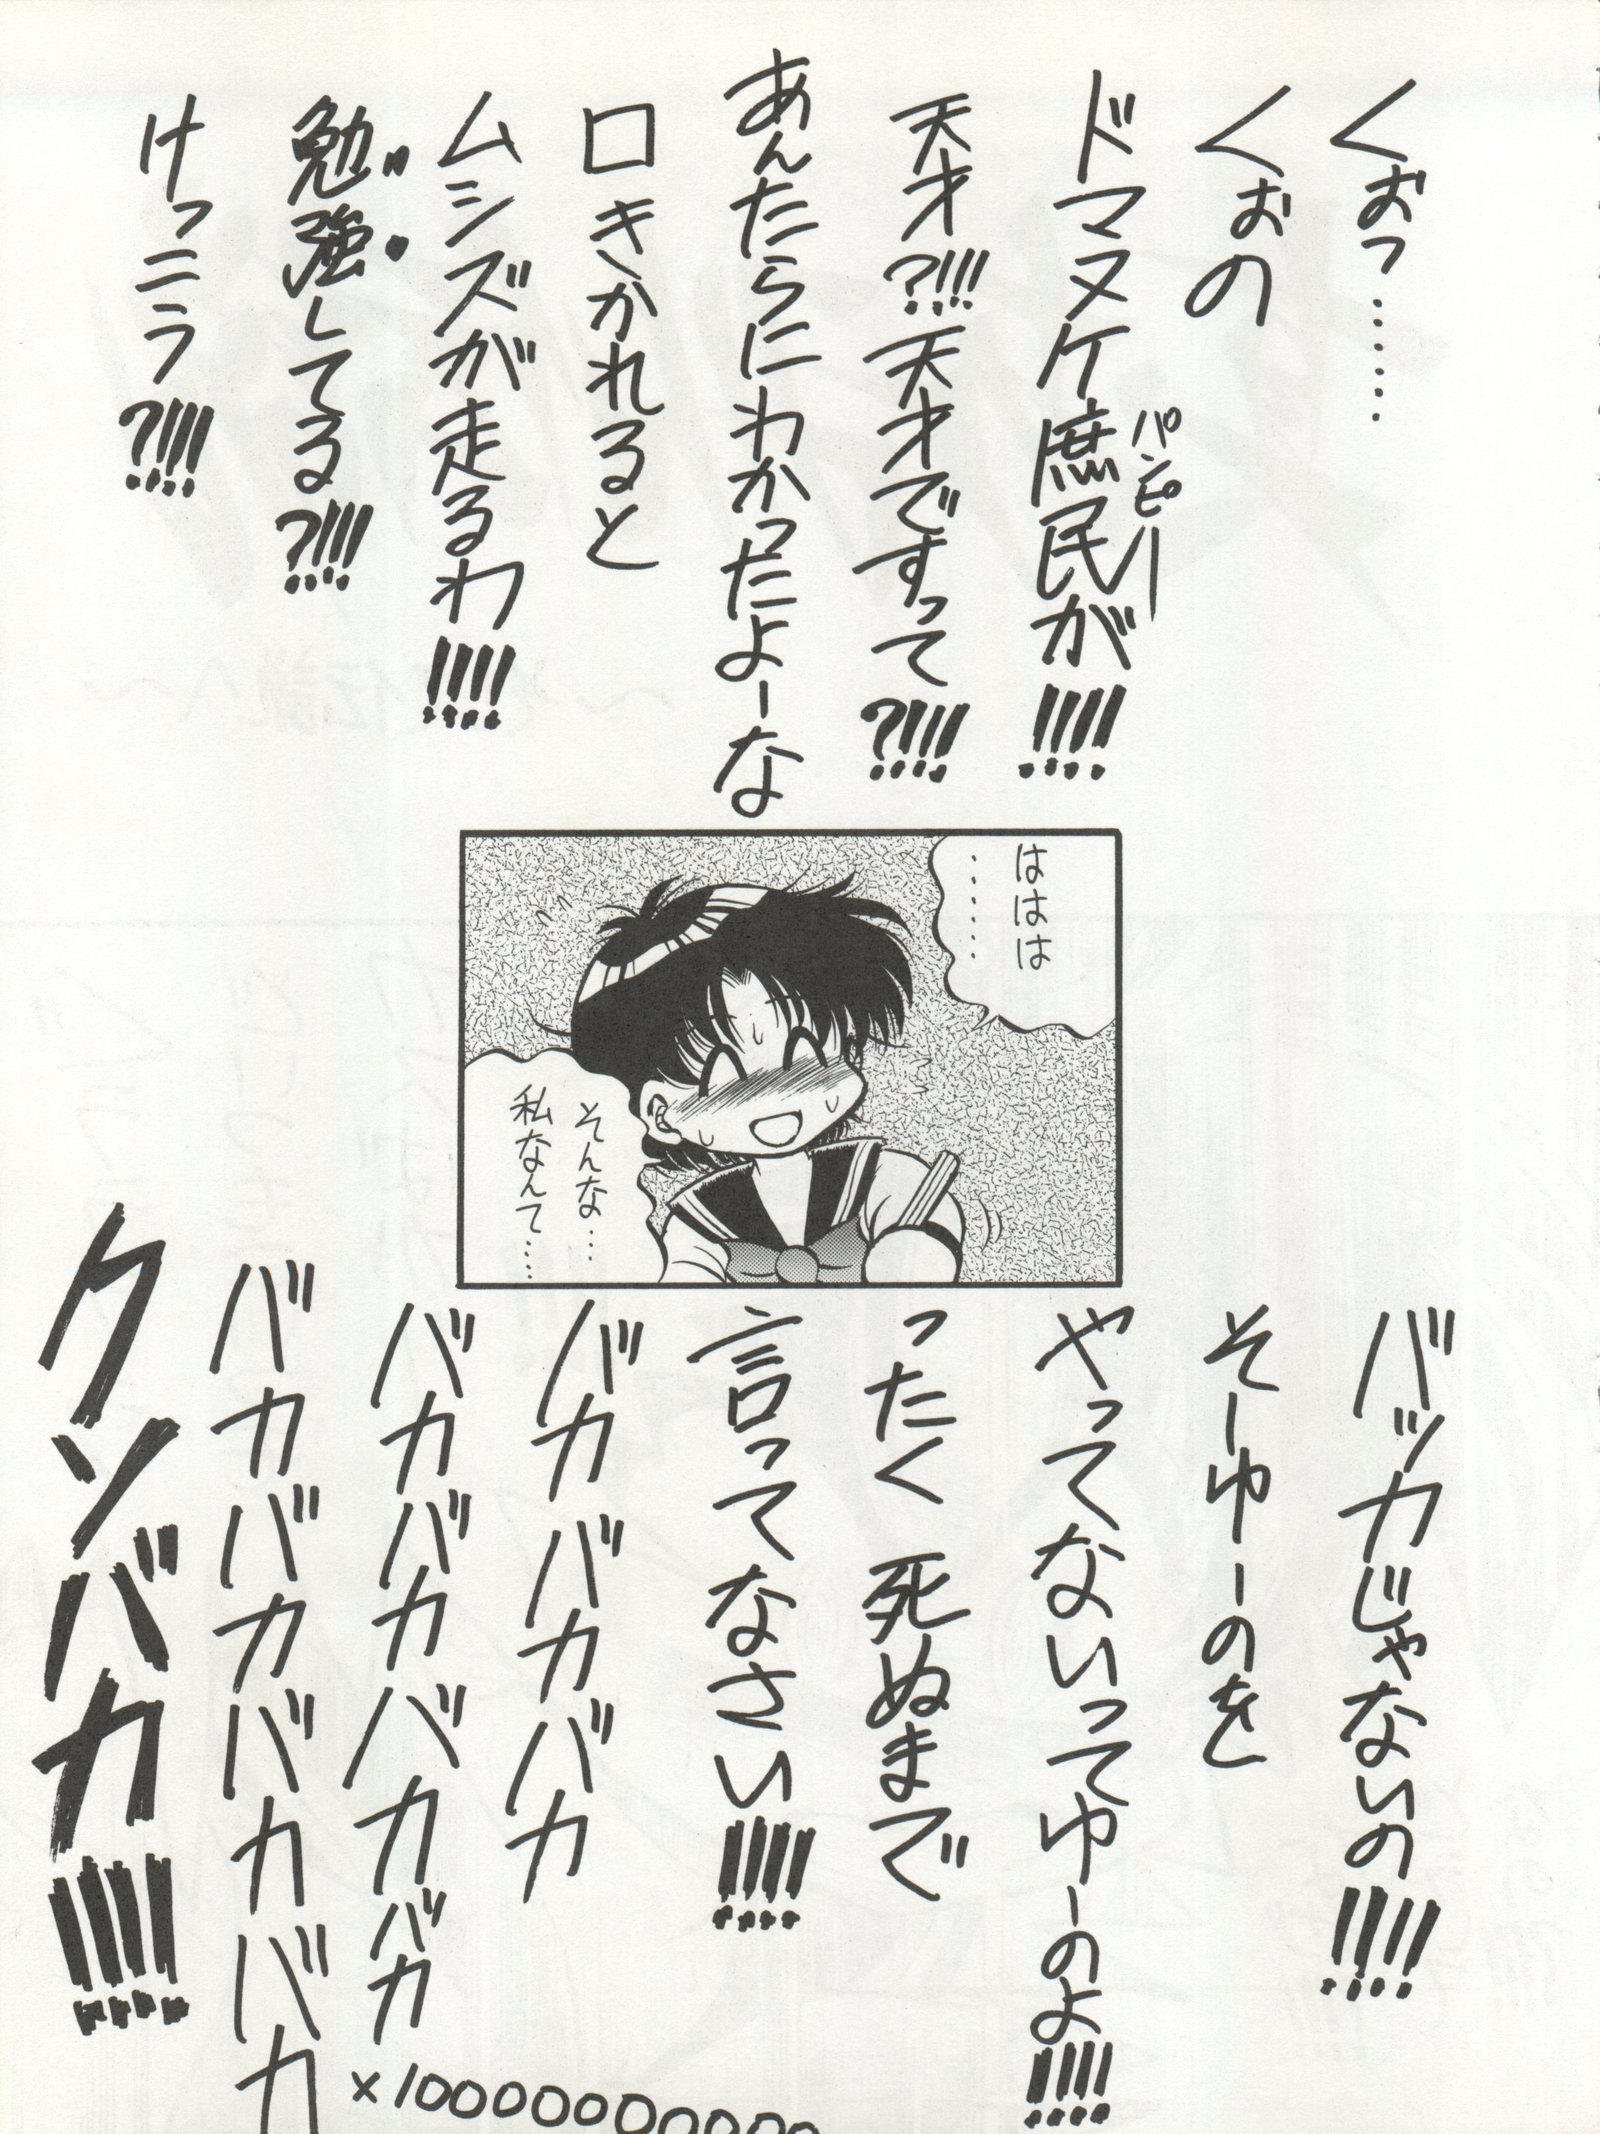 くぉっ……
くぉの
ドマヌケ庶民が!!!!
パンピー
天才?!!! 天才ですって?!!!
あんたらにわかったよーな
口きかれると
ムシズが走るわ!!!!
勉強してる?!!!
けっこう?!!!
ははは
……
そんな…
私なんて……
バッカじゃないの!!!!
そーゆーのを
やってないってゆーのよ!!!!
ったく 死ぬまで
言ってなさい!!!!
バカバカバカ
バカバカバカバカ
バカバカバカバカ
×10000000000
クソバカ!!!!